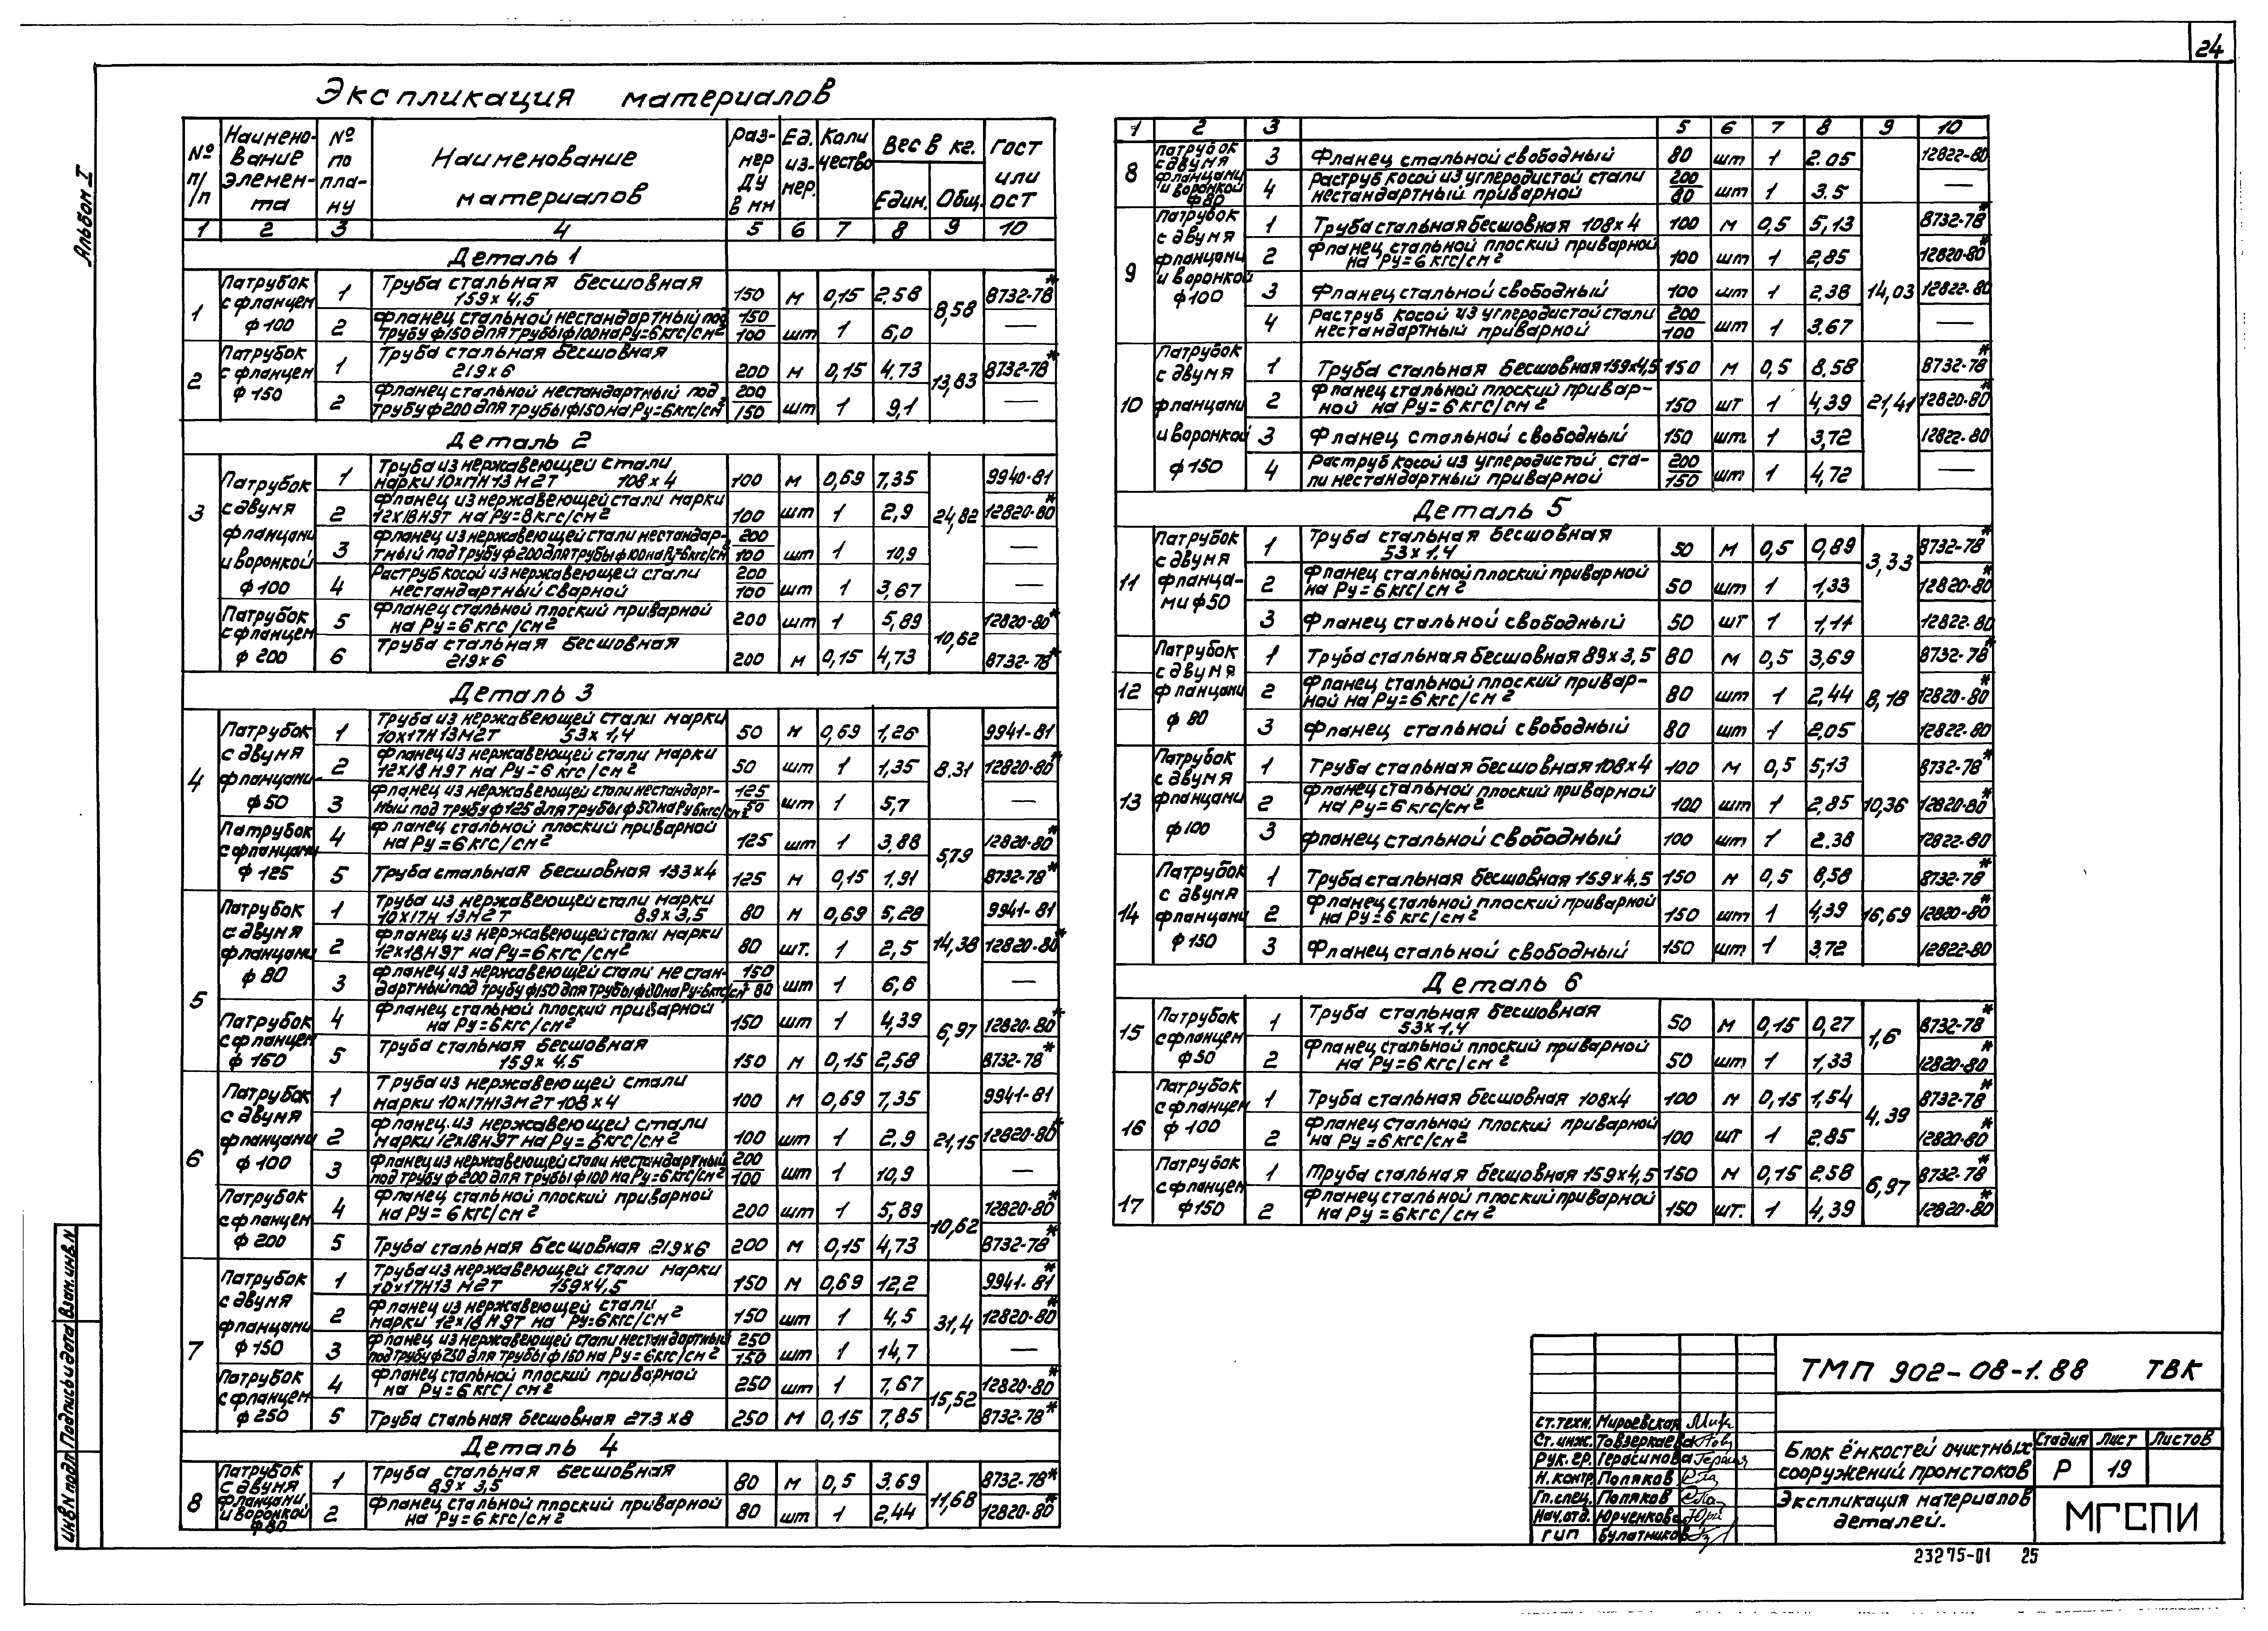 24
Альбом I
Экспликация материалов
№ п/п | Наимено-вание элемен-та | № по пла-ну | Наименование материалов | Раз-мер ДУ в мм | Ед. из-мер. | Коли чество | Вес в кг. Един. | Общ. | ГОСТ или ОСТ
1 2 3 4 5 6 7 8 9 10
Деталь 1
1 Патрубок с фланцем ф100 1 Труба стальная бесшовная 159×4,5 150 м 0,15 2.58 8,58 8732-78*
2 Фланец стальной нестандартный под трубу ф150 для трубы ф100 на Ру=6кгс/см2 150/100 шт 1 6,0 —
2 Патрубок с фланцем ф150 1 Труба стальная бесшовная 219×6 200 м 0,15 4.73 13,83 8732-78*
2 Фланец стальной нестандартный под трубу ф200 для трубы ф150 на Ру=6кгс/см2 200/150 шт 1 9,1 —
Деталь 2
3 Патрубок с двумя фланцами и воронкой ф100 1 Труба из нержавеющей стали марки 10×17Н13М2Т 108×4 100 м 0,69 7,35 24,82 9940-81
2 Фланец из нержавеющей стали марки 12×18Н9Т на Ру=8кгс/см2 100 шт 1 2,9 12820-80*
3 Фланец из нержавеющей стали нестандар-тный под трубу ф200 для трубы ф100 на Ру=6кгс/см 200/100 шт 1 10,9 —
4 Раструб косой из нержавеющей стали нестандартный сварной 200/100 шт 1 3,67 —
Патрубок с фланцем ф200 5 Фланец стальной плоский приварной на Ру=6кгс/см2 200 шт 1 5,89 10,62 12820-80*
6 Труба стальная бесшовная 219×6 200 м 0,15 4,73 8732-78*
Деталь 3
4 Патрубок с двумя фланцами ф50 1 Труба из нержавеющей стали марки 10×17Н13М2Т 53×1,4 50 м 0,69 1,26 8.31 9941-81
2 Фланец из нержавеющей стали марки 12×18Н9Т на Ру=6кгс/см2 50 шт 1 1,35 12820-80*
3 Фланец из нержавеющей стали нестандарт-ный под трубу ф125 для трубы ф50 на Ру6кгс/см2 125/50 шт 1 5,7 —
Патрубок с фланцами ф125 4 Фланец стальной плоский приварной на Ру=6кгс/см2 125 шт 1 3,88 5,79 12820-80*
5 Труба стальная бесшовная 133×4 125 м 0,15 1,91 8732-78*
5 Патрубок с двумя фланцами ф80 1 Труба из нержавеющей стали марки 10×17Н13М2Т 89×3,5 80 м 0,69 5,28 14,38 9941-81
2 Фланец из нержавеющей стали марки 12×18Н9Т на Ру=6кгс/см2 80 шт. 1 2,5 12820-80*
3 Фланец из нержавеющей стали нестан-дартный под трубу ф150 для трубы ф80 на Ру=6кгс/см2 150/80 шт 1 6,6 —
Патрубок с фланцем ф150 4 Фланец стальной плоский приварной на Ру=6кгс/см2 150 шт 1 4,39 6,97 12820-80*
5 Труба стальная бесшовная 159×4,5 150 м 0,15 2,58 8732-78*
6 Патрубок с двумя фланцами ф100 1 Труба из нержавеющей стали марки 10×17Н13М2Т 108×4 100 м 0,69 7,35 21,15 9941-81
2 Фланец из нержавеющей стали марки 12×18Н9Т на Ру=6кгс/см2 100 шт 1 2,9 12820-80*
3 Фланец из нержавеющей стали нестандартный под трубу ф200 для трубы ф100 на Ру=6кгс/см2 200/100 шт 1 10,9 —
Патрубок с фланцем ф200 4 Фланец стальной плоский приварной на Ру=6кгс/см2 200 шт 1 5,89 10,62 12820-80*
5 Труба стальная бесшовная 219×6 200 м 0,15 4,73 8732-78*
7 Патрубок с двумя фланцами ф150 1 Труба из нержавеющей стали марки 10×17Н13М2Т 159×4,5 150 м 0,69 12,2 31,4 9941-81*
2 Фланец из нержавеющей стали марки 12×18Н9Т на Ру=6кгс/см2 150 шт 1 4,5 12820-80*
3 Фланец из нержавеющей стали нестандартный под трубу ф250 для трубы ф150 на Ру=6кгс/см2 250/150 шт 1 14,7 —
Патрубок с фланцем ф250 4 Фланец стальной плоский приварной на Ру=6кгс/см2 250 шт 1 7,67 15,52 12820-80*
5 Труба стальная бесшовная 273×8 250 м 0,15 7,85 8732-78*
Деталь 4
8 Патрубок с двумя фланцами и воронкой ф80 1 Труба стальная бесшовная 89×3,5 80 м 0,5 3.69 11,68 8732-78*
2 Фланец стальной плоский приварной на Ру=6кгс/см2 80 шт 1 2,44 12820-80*
1 2 3 5 6 7 8 9 10
8 Патрубок с двумя фланцами и воронкой ф80 3 Фланец стальной свободный 80 шт 1 2.05 12822-80
4 Раструб косой из углеродистой стали нестандартный приварной 200/80 шт 1 3.5 —
9 Патрубок с двумя фланцами и воронкой ф100 1 Труба стальная бесшовная 108×4 100 м 0,5 5,13 14,03 8732-78*
2 Фланец стальной плоский приварной на Ру=6кгс/см2 100 шт 1 2,85 12820-80*
3 Фланец стальной свободный 100 шт 1 2,38 12822-80
4 Раструб косой из углеродистой стали нестандартный приварной 200/100 шт 1 3.67 —
10 Патрубок с двумя фланцами и воронкой ф150 1 Труба стальная бесшовная 159×4,5 150 м 0,5 8.58 21,41 8732-78*
2 Фланец стальной плоский привар-ной на Ру=6кгс/см2 150 шт 1 4,39 12820-80*
3 Фланец стальной свободный 150 шт. 1 3,72 12822-80
4 Раструб косой из углеродистой ста-ли нестандартный приварной 200/150 шт 1 4,72 —
Деталь 5
11 Патрубок с двумя фланца-ми ф50 1 Труба стальная бесшовная 53×1,4 50 м 0,5 0,89 3,33 8732-78*
2 Фланец стальной плоский приварной на Ру=6кгс/см2 50 шт 1 1,33 12820-80*
3 Фланец стальной свободный 50 шт 1 1,11 12822-80
12 Патрубок с двумя фланцами ф80 1 Труба стальная бесшовная 89×3,5 80 м 0,5 3,69 8,18 8732-78*
2 Фланец стальной плоский привар-ной на Ру=6кгс/см2 80 шт 1 2,44 12820-80*
3 Фланец стальной свободный 80 шт 1 2,05 12822-80
13 Патрубок с двумя фланцами ф100 1 Труба стальная бесшовная 108×4 100 м 0,5 5,13 10,36 8732-78*
2 Фланец стальной плоский приварной на Ру=6кгс/см2 100 шт 1 2,85 12820-80*
3 Фланец стальной свободный 100 шт 1 2.38 12822-80
14 Патрубок с двумя фланцами ф150 1 Труба стальная бесшовная 159×4,5 150 м 0,5 8,58 16,69 8732-78*
2 Фланец стальной плоский приварной на Ру=6кгс/см2 150 шт 1 4,39 12820-80*
3 Фланец стальной свободный 150 шт 1 3,72 12822-80
Деталь 6
15 Патрубок с фланцем ф50 1 Труба стальная бесшовная 53×1,4 50 м 0,15 0,27 1,6 8732-78*
2 Фланец стальной плоский приварной на Ру=6кгс/см2 50 шт 1 1,33 12820-80*
16 Патрубок с фланцем ф100 1 Труба стальная бесшовная 108×4 100 м 0,15 1,54 4.39 8732-78*
2 Фланец стальной плоский приварной на Ру=6кгс/см2 100 шт 1 2.85 12820-80*
17 Патрубок с фланцем ф150 1 Труба стальная бесшовная 159×4,5 150 м 0,15 2.58 6,97 8732-78*
2 Фланец стальной плоский приварной на Ру=6кгс/см2 150 шт. 1 4,39 12820-80*
ТМП 902-08-1.88 ТВК
Ст.техн. Мироевская
Ст.инж. Товзеркаева
Рук.гр. Герасимова
Н.контр. Поляков
Гл.спец. Поляков
Нач.отд. Юрченкова
ГИП Булатников
Блок ёмкостей очистных сооружений промстоков
Стадия Лист Листов
Р 19
Экспликация материалов деталей.
МГСПИ
23275-01 25
Инв N подл Подпись и дата Взам.инв.N